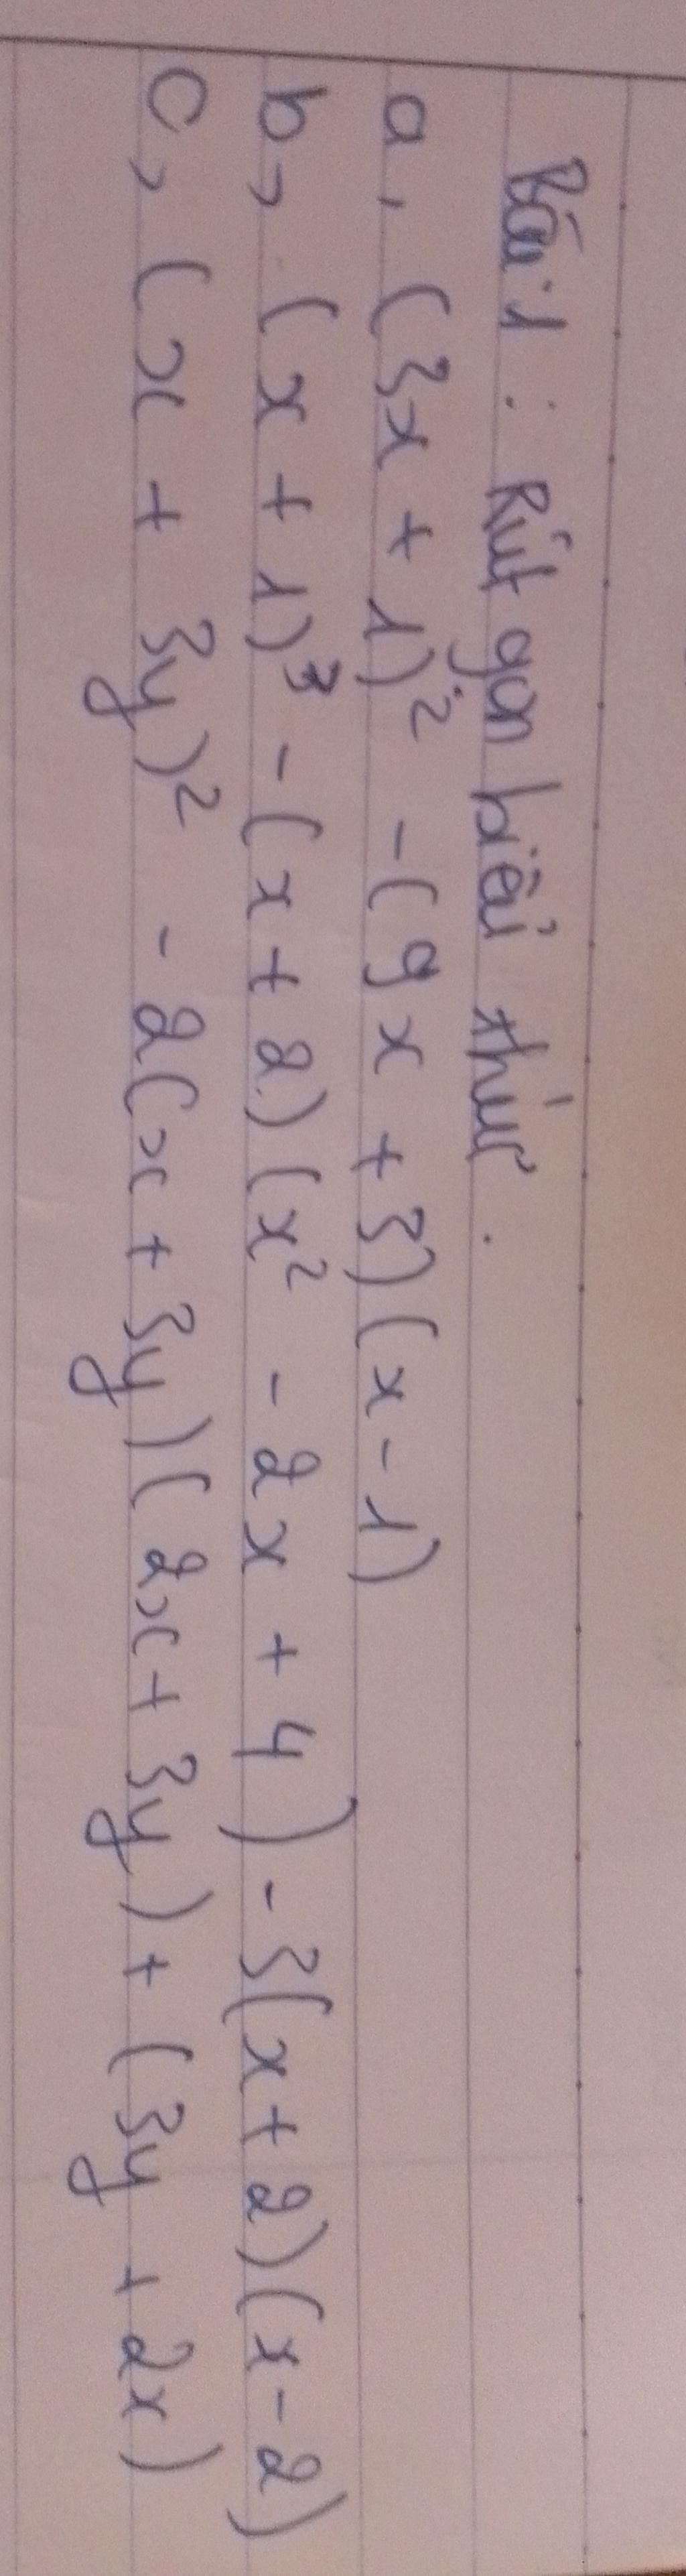 Bài 1 : Rút gọn biểu thức .
a, (3x + 1)² - (9x + 3)(x - 1)
b, (x + 1)³ - (x + 2)(x² - 2x + 4) - 3(x + 2)(x - 2)
c, (x + 3y)² - 2(x + 3y)(2x + 3y) + (3y + 2x)